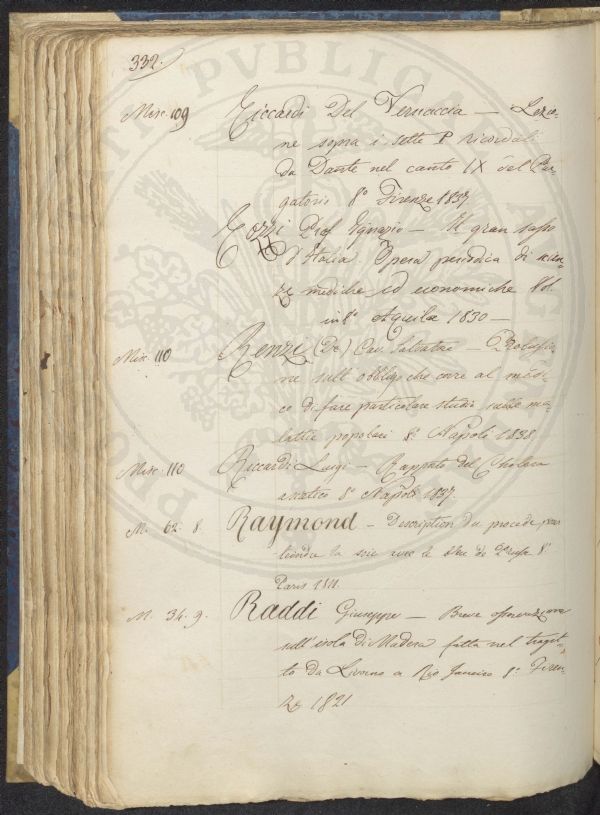 332.
Misc. 109 Riccardi Del Vernaccia — Lezio-
ne sopra i sette P ricordati
da Dante nel canto IX del Pur-
gatorio 8° Firenze 1837
Rozzi Prof Ignazio — Il gran sasso
d'Italia. Opera periodica di scien-
ze mediche ed economiche Vol.
in 8° Aquila 1830 —
Misc. 110 Renzi (De) Cav. Salvatore — Prolusio-
ne sull'obbligo che corre al medi-
co di fare particolare studio sulle ma-
lattie popolari 8° Napoli 1838
Misc. 110 Riccardi Luigi — Rapporto del Cholera
asiatico 8° Napoli 1837.
M. 62. 8. Raymond — Description du procede pour
teindre la soie avec le bleu de Prusse 8°
Paris 1811.
M. 34. 9. Raddi Giuseppe — Breve osservazione
sull'isola di Madera fatta nel tragit-
to da Livorno a Rio Janeiro 8° Firen-
ze 1821
PUBLICA